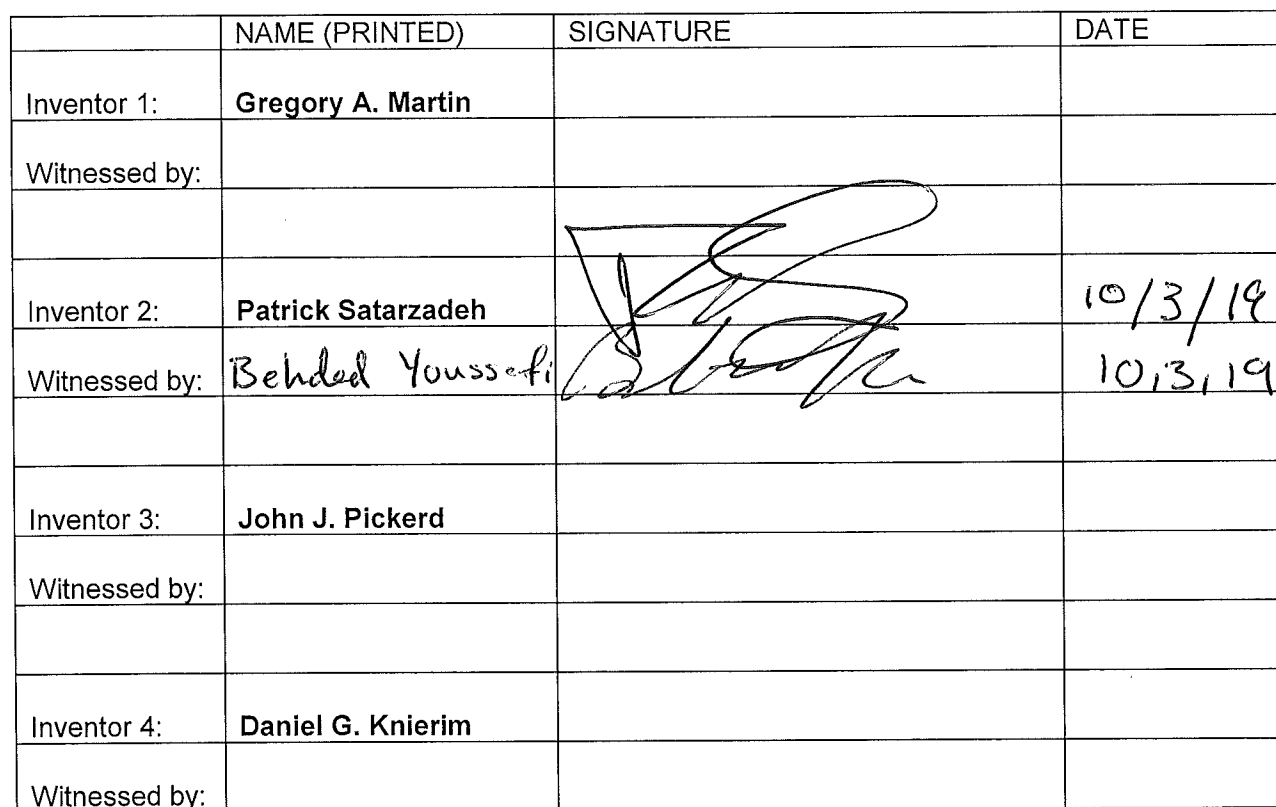 NAME (PRINTED) SIGNATURE DATE
Inventor 1: Gregory A. Martin
Witnessed by:
Inventor 2: Patrick Satarzadeh 10/3/19
Witnessed by: Behdad Youssefi 10,3,19
Inventor 3: John J. Pickerd
Witnessed by:
Inventor 4: Daniel G. Knierim
Witnessed by: